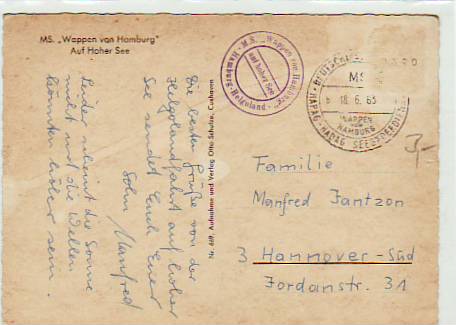 MS. „Wappen von Hamburg"
Auf Hoher See
Die besten Grüße von der
Helgolandfahrt auf hoher
See sendet Euch Euer
Sohn Manfred
Leider scheint die Sonne
nicht und die Wellen
könnten höher sein.
Nr. 619. Aufnahme und Verlag Otto Schulze, Cuxhaven
M.S. „Wappen von Hamburg"
auf hoher See
Hamburg-Helgoland
DEUTSCHE
MS
18.6.63
WAPPEN
VON
HAMBURG
HAPAG SEEBÄDERDIENST
3,-
Familie
Manfred Jantzon
3 Hannover-Süd
Jordanstr. 31